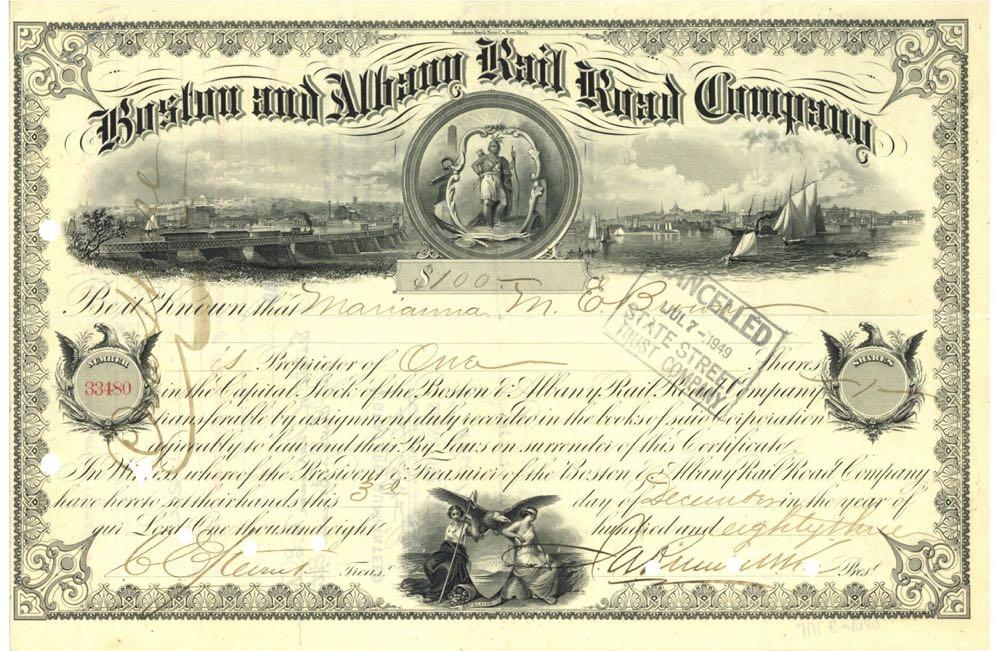 American Bank Note Co. New York.
Boston and Albany Rail Road Company
$100
Be it Known that Marianna M. E. Brown
CANCELLED
JUL 7-1949
STATE STREET
TRUST COMPANY
is Proprietor of One Shares
NUMBER
33480
SHARES
1
in the Capital Stock of the Boston & Albany Rail Road Company
transferable by assignment duly recorded in the books of said Corporation
agreeably to law and their By Laws on surrender of this Certificate.
In Witness whereof the President & Treasurer of the Boston & Albany Rail Road Company
have hereto set their hands this 3d day of December in the year of
our Lord One thousand eight hundred and eighty three
Treasr. Prest.